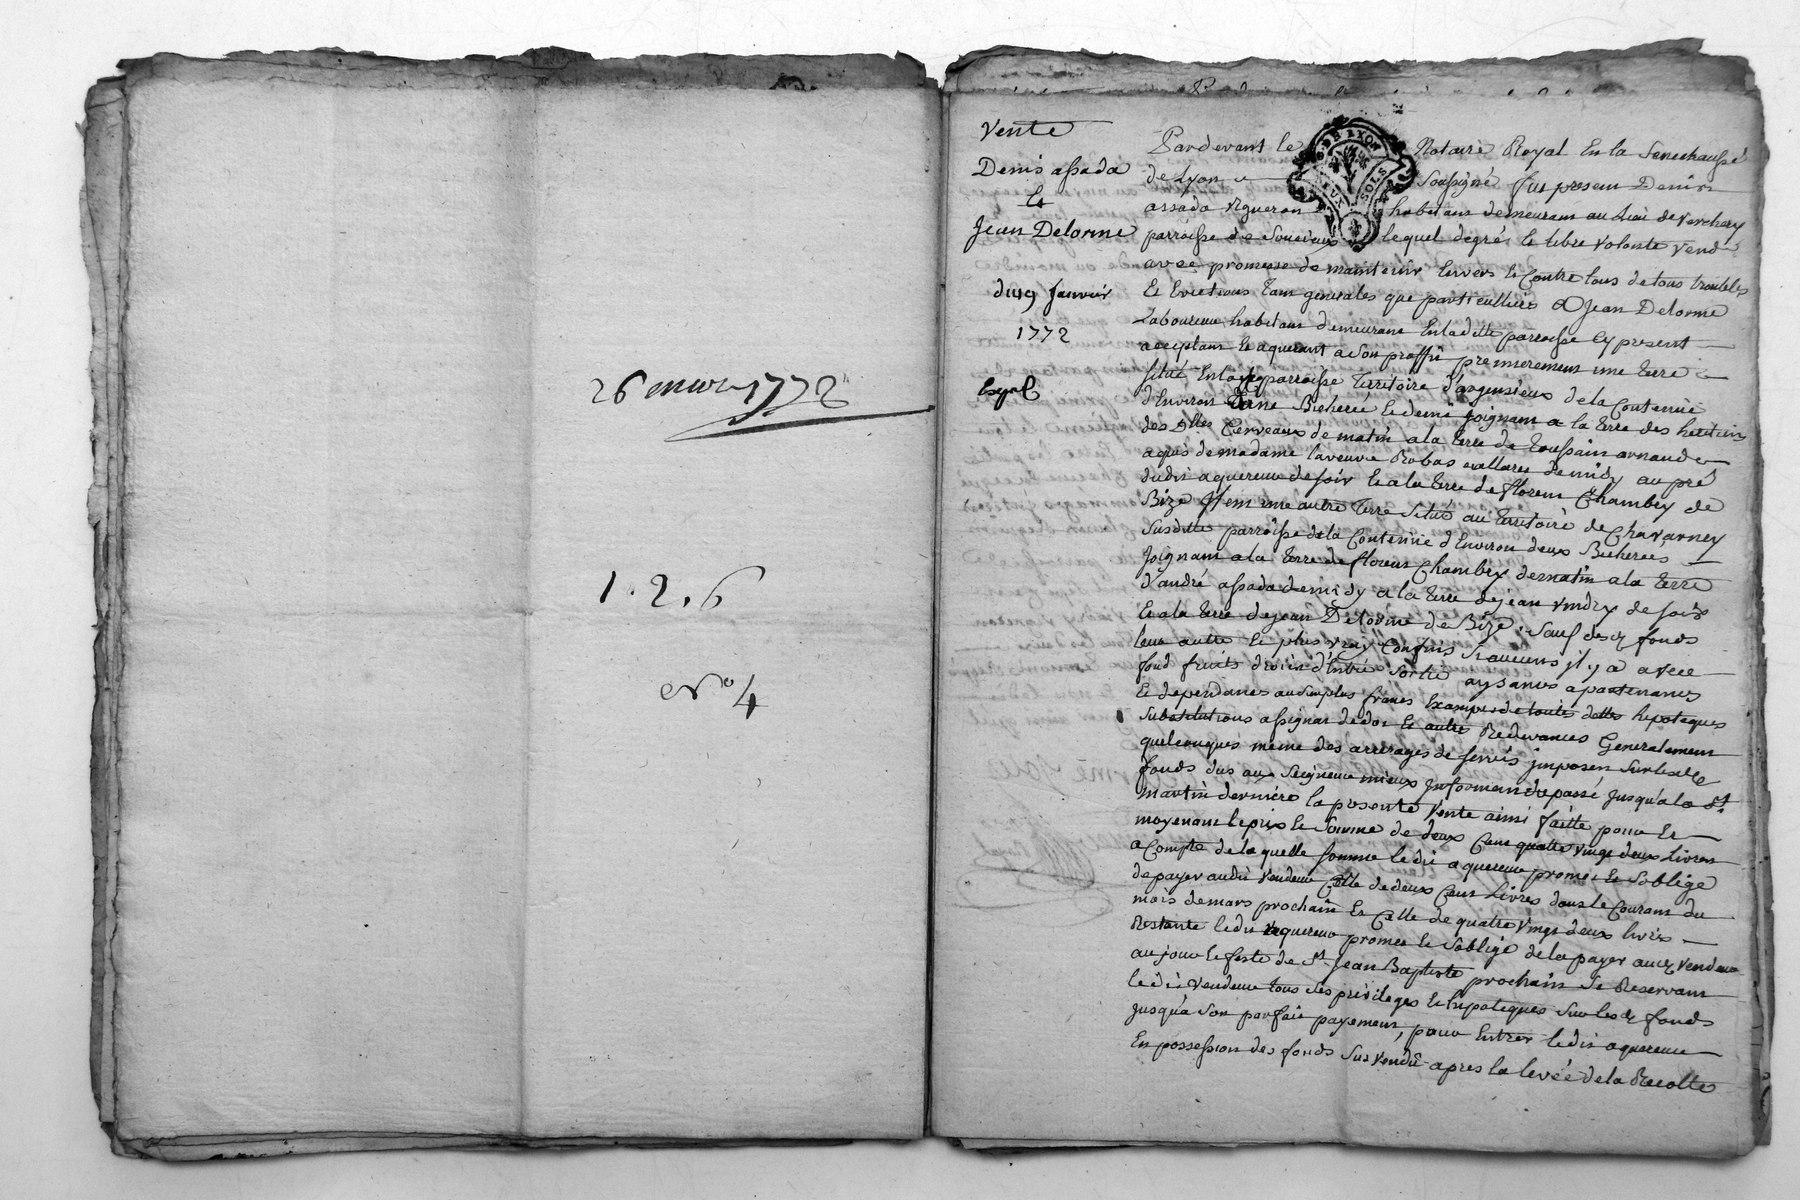 26 1772
1.2.6
No 4
Vente
Denis assada
Et
Jean Delorme
du 19 Janvier
1772
Expé
Pardevant le Notaire Royal En la Senechaussé
de Lyon Soussigné fut present Denis
assada vigneron habitant demeurant au lieu de Verchery
parroisse de Soucieux lequel degré Et libre volonté vend
avec promesse de maintenir Envers Et Contre tous de tous troubles
Et Evictions tant generales que particullieres a Jean Delorme
Laboureur habitant demeurant Enladitte parroisse Cy present
acceptant Et aquerant a Son proffit premierement une terre
situé Enladite parroisse Territoire d'argensieux de la Contenüe
d'Environ une Bicherée Et demi joignant a la terre des heritiers
des Dlles Cerveaux de matin a la terre de toussain arnaud
aquis de madame la veuve Robas de midy au pré
dudit aquereur de soir Et a la terre de florem Chambry de
Bize Item une autre Terre Situé au territoire de Chavarney
Susditte parroisse de la Contenüe d'Environ deux Bicherees
Joignant a la terre de florem Chambry de matin a la terre
d'andré assada de midy a la terre de jean vindry de soir
Et a la terre de jean Delorme de Bize, Sauf desd fonds
leur autre Et plus vray Confins Si aucuns jl y a avec
fond fruits droits d'Entrée Sortie aysances apartenances
Et dependances au Surplus francs Exampts de toutes dettes hepoteques
Substitutions assignat de dot Et autre Redevances Generalement
quelconques meme des arrerages de servis jmposés Sur lesd
fonds dus aux Seigneur mieux Jnformé du passé jusqu'a la St
Martin derniere la presente Vente ainsi faitte pour Et
moyenant le prix Et Somme de deux Cent quatre vingt deux Livres
a Compte de laquelle somme ledit aquereur promet Et S'oblige
de payer audit vendeur Celle de deux Cent Livres dans le Courant du
mois de mars prochain Et Celle de quatre vingt deux livres
Restante ledit aquereur promet Et S'oblige de la payer aud vendeur
au jour Et feste de St Jean Baptiste prochain Se Reservant
ledit vendeur tous Ses privileges Et hipoteques Sur lesd fonds
jusqu'a Son parfait payement, pour Entrer ledit aquereur
En possession des fonds Sus vendu apres la levée de la Recolte